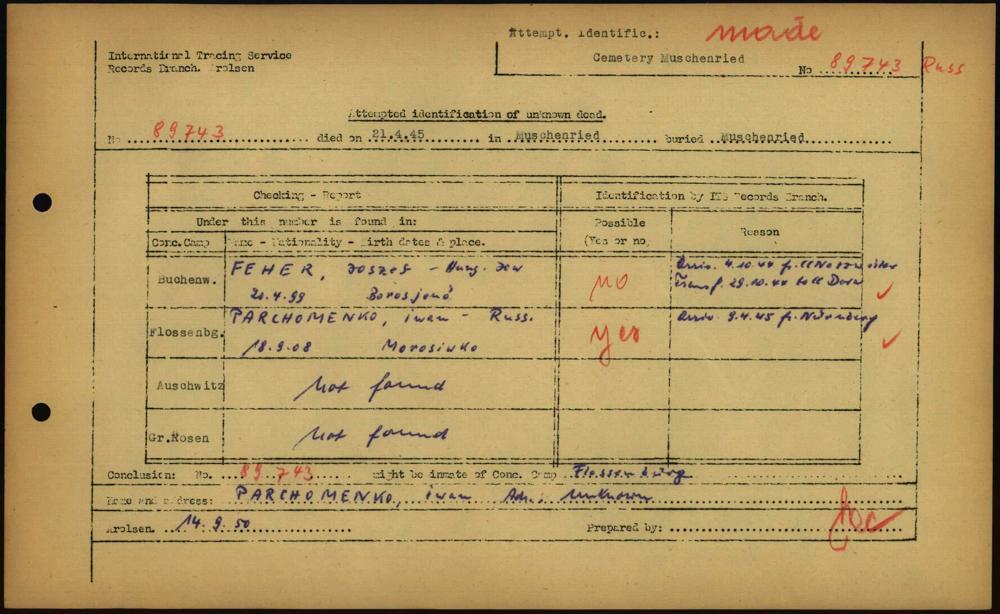 Attempt. Identific.: made
International Tracing Service
Records Branch. Arolsen
Cemetery Muschenried
No 89743 Russ
Attempted identification of unknown dead.
No 89743 died on 21.4.45 in Muschenried buried Muschenried
Checking - Report
Identification by ITS Records Branch.
Under this number is found in:
Possible
(Yes or no)
Reason
Conc.Camp
Name - Nationality - Birth dates & place.
Buchenw.
FEHER, Joszef - Hung. Jew
20.4.99 Borosjenö
no
Arriv. 4.10.44 fr.
Transf. 29.10.44 to cc Dora
Flossenbg.
PARCHOMENKO, iwan - Russ.
18.9.08 Morosiwko
yes
Arriv. 9.4.45 fr. Nürnberg
Auschwitz
Not found
Gr.Rosen
Not found
Conclusion: No. 89743 might be inmate of Conc. Camp Flossenbürg
Name and address: PARCHOMENKO, iwan Adr. Unknown
Arolsen. 14.9.50 Prepared by: